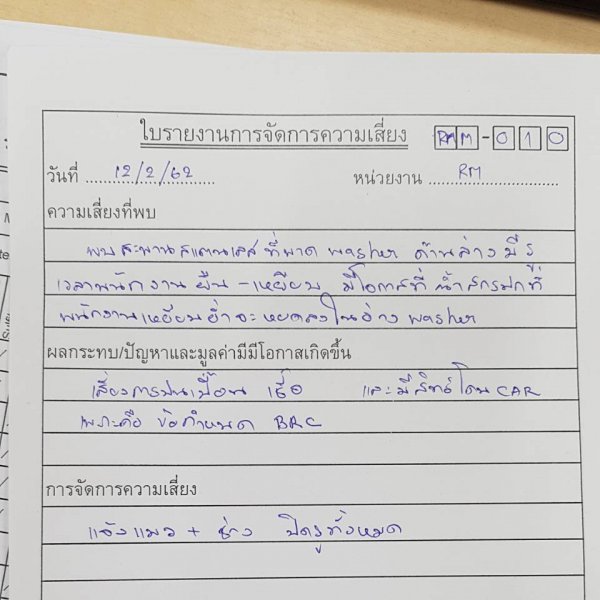 ใบรายงานการจัดการความเสี่ยง RMM-010
วันที่ 12/2/62 หน่วยงาน RM
ความเสี่ยงที่พบ
พบสะพานสแตนเลสที่พาด washer ด้านล่างมีรู
เวลาพนักงานยืน-เหยียบ มีโอกาสที่น้ำสกรปกที่
พนักงานเหยียบย่ำจะหยดลงในอ่าง washer
ผลกระทบ/ปัญหาและมูลค่ามีมีโอกาสเกิดขึ้น
เสี่ยงการปนเปื้อน เชื้อ และมีสิทธ์โดน CAR
เพราะคือ ข้อกำหนด BRC
การจัดการความเสี่ยง
แจ้งแมว + ช่าง ปิดรูทั้งหมด